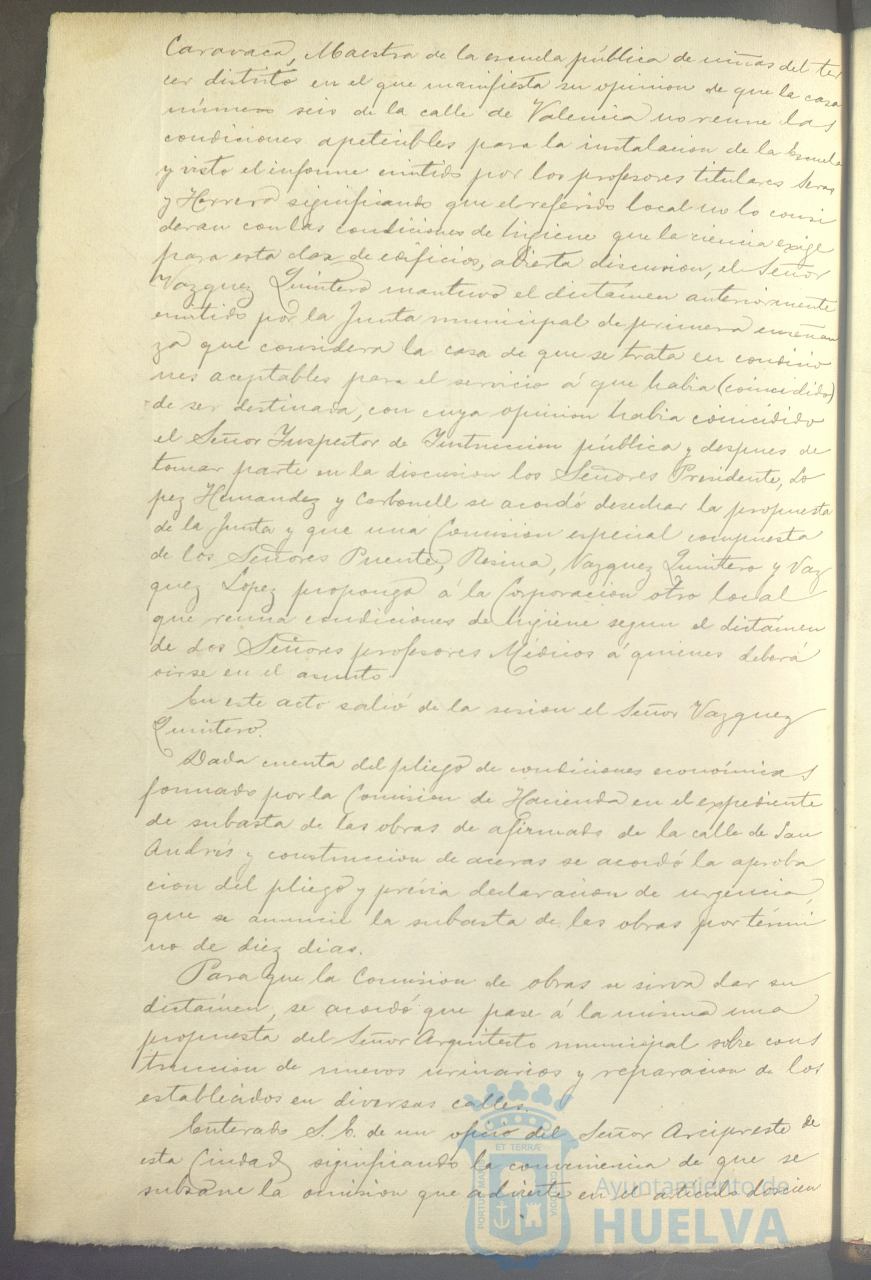 Caravaca, Maestra de la escuela pública de niñas del ter
cer distrito en el que manifiesta su opinion de que la casa
número seis de la calle de Valencia no reune las
condiciones apetecibles para la instalacion de la Escuela
y visto el informe emitido por los profesores titulares Seras
y Herrera significando que el referido local no lo consi
deran con las condiciones de higiene que la ciencia exige
para esta clase de edificios, abierta discusion, el Señor
Vazquez Quintero mantuvo el dictámen anteriormente
emitido por la Junta municipal de primera enseñan
za que considera la casa de que se trata en condicio
nes aceptables para el servicio á que habia (coincidido)
de ser destinada, con cuya opinion habia coincidido
el Señor Inspector de Instruccion pública y despues de
tomar parte en la discusion los Señores Presidente, Lo
pez Hernandez y Carbonell se acordó desechar la propuesta
de la Junta y que una Comision especial compuesta
de los Señores Puente, Resina, Vazquez Quintero y Vaz
quez Lopez proponga á la Corporacion otro local
que reuna condiciones de higiene segun el dictámen
de dos Señores profesores Médicos á quienes deberá
oirse en el asunto.
En este acto salió de la sesion el Señor Vazquez
Quintero.
Dada cuenta del pliego de condiciones económicas
formado por la Comision de Hacienda en el expediente
de subasta de las obras de afirmado de la calle de San
Andrés y construccion de aceras se acordó la aproba
cion del pliego y prévia declaracion de urgencia,
que se anuncie la subasta de las obras por térmi
no de diez dias.
Para que la Comision de obras se sirva dar su
dictámen, se acordó que pase á la misma una
propuesta del Señor Arquitecto municipal sobre cons
truccion de nuevos urinarios y reparacion de los
establecidos en diversas calles.
Enterado S. E. de un oficio del Señor Arcipreste de
esta Ciudad significando la conveniencia de que se
subsane la omision que advierte en el articulo doscien
ET TERRÆ
PORTUS MARIS
Ayuntamiento de
HUELVA